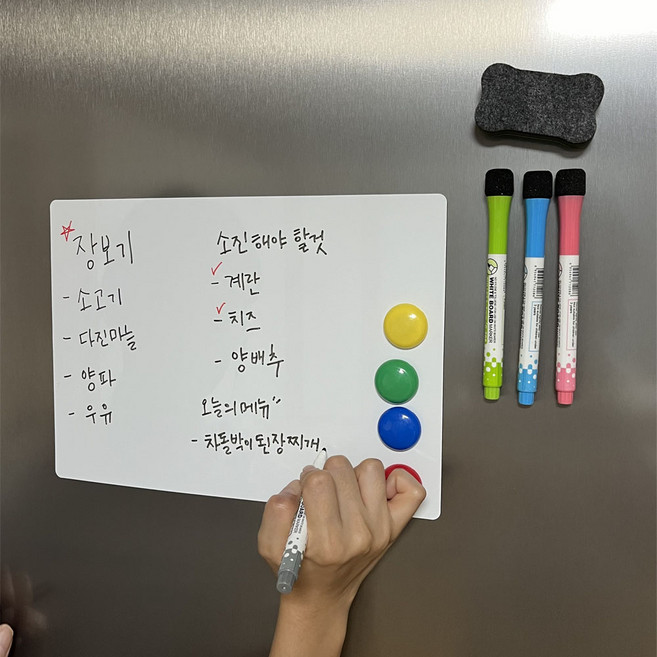 장보기
- 소고기
- 다진마늘
- 양파
- 우유
소진해야 할것
- 계란
- 치즈
- 양배추
오늘의메뉴"
- 차돌박이된장찌개.
WHITE BOARD
MARKER
WHITE BOARD
MARKER